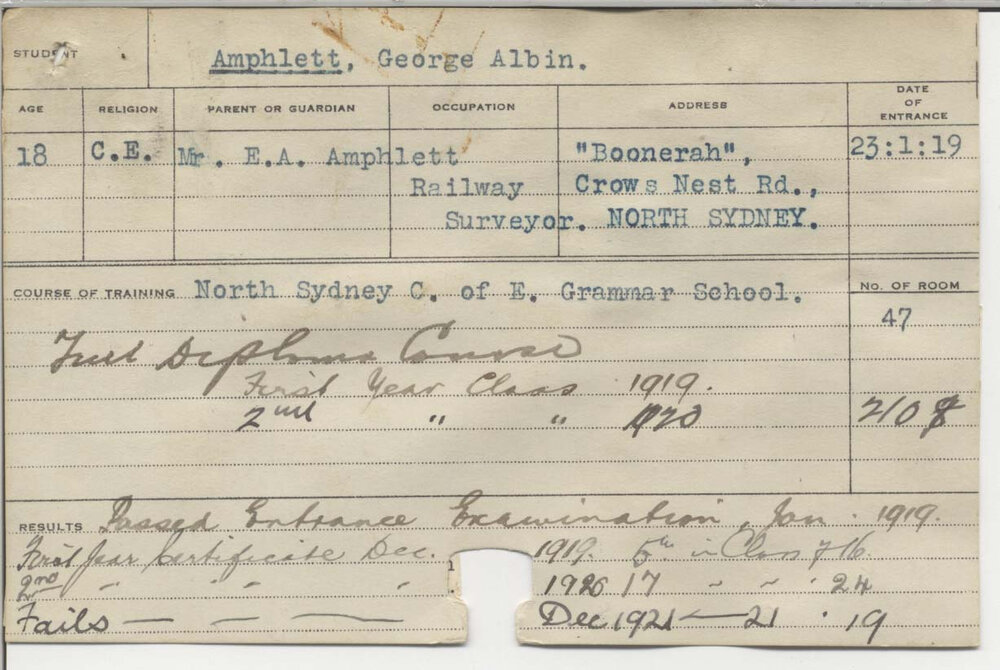 STUDENT Amphlett, George Albin.
AGE RELIGION PARENT OR GUARDIAN OCCUPATION ADDRESS DATE OF ENTRANCE
18 C.E. Mr. E.A. Amphlett "Boonerah", 23:1:19
Railway Crows Nest Rd.,
Surveyor. NORTH SYDNEY.
COURSE OF TRAINING North Sydney C. of E. Grammar School. No. OF ROOM
47
Full Diploma Course
First Year Class 1919.
2nd " " 1920 210
RESULTS Passed Entrance Examination, Jan. 1919.
First Year Certificate Dec. 1919. 5th in Class of 16.
2nd " " " 1920 17 " " " 24
Fails — — — Dec 1921 — 21 . 19